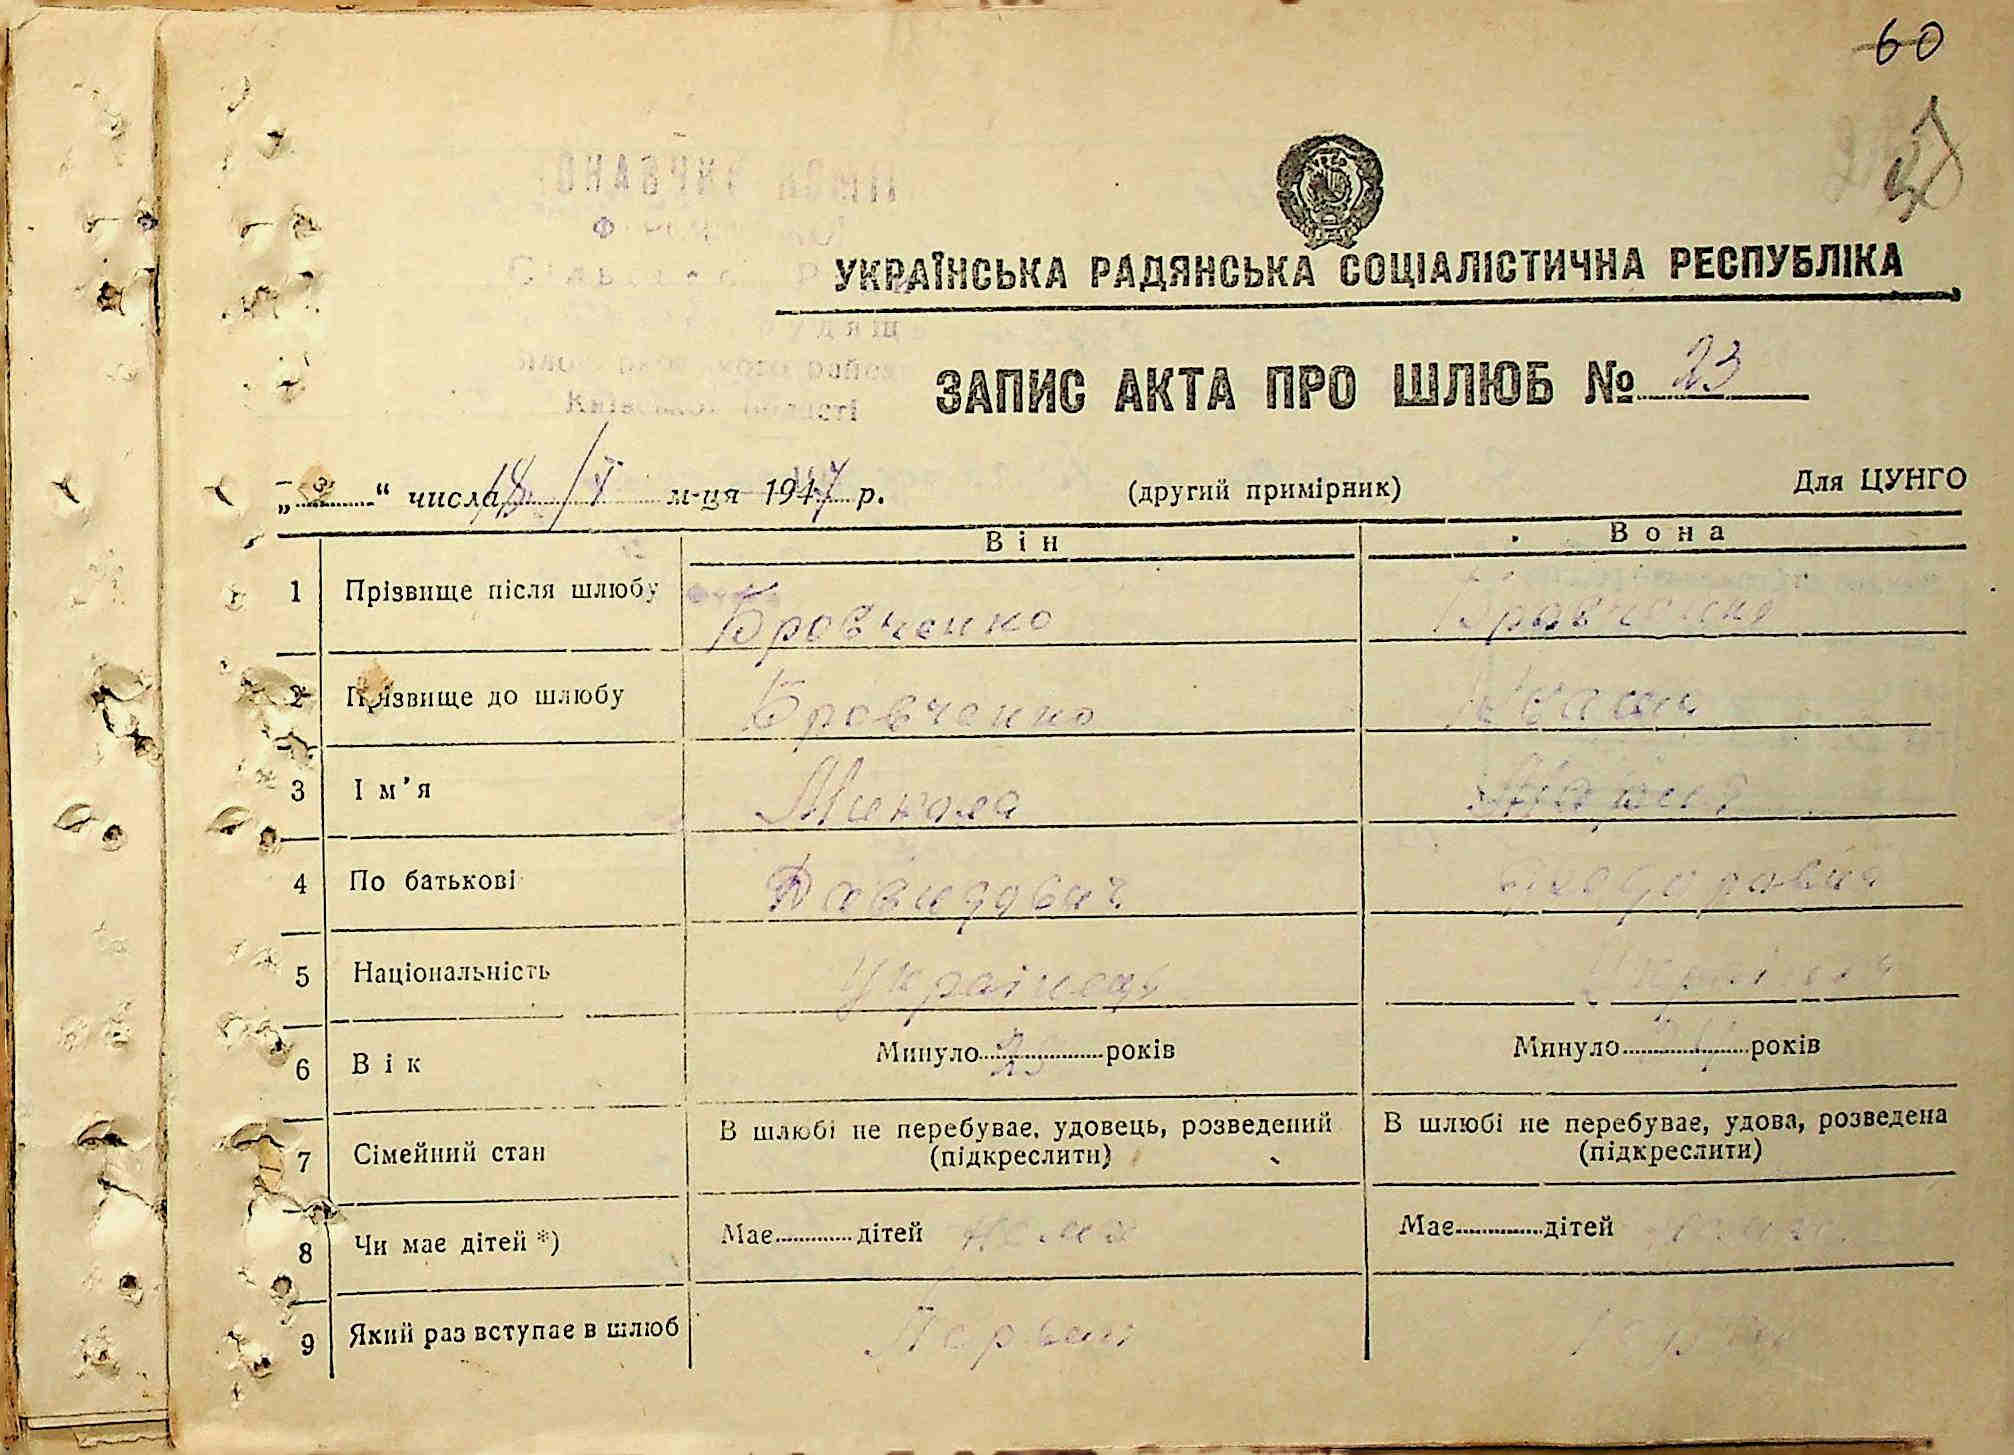 60
УКРАЇНСЬКА РАДЯНСЬКА СОЦІАЛІСТИЧНА РЕСПУБЛІКА
ЗАПИС АКТА ПРО ШЛЮБ № 23
„ “ числа 18/V м-ця 1947 р. (другий примірник) Для ЦУНГО
Він Вона
1 Прізвище після шлюбу Бровченко Бровченко
2 Прізвище до шлюбу Бровченко
3 Ім’я Микола Марія
4 По батькові Давидович
5 Національність Українець Українка
6 Вік Минуло років Минуло років
7 Сімейний стан В шлюбі не перебуває, удовець, розведений В шлюбі не перебуває, удова, розведена
(підкреслити) (підкреслити)
8 Чи має дітей *) Має дітей нема Має дітей нема
9 Який раз вступає в шлюб Первий